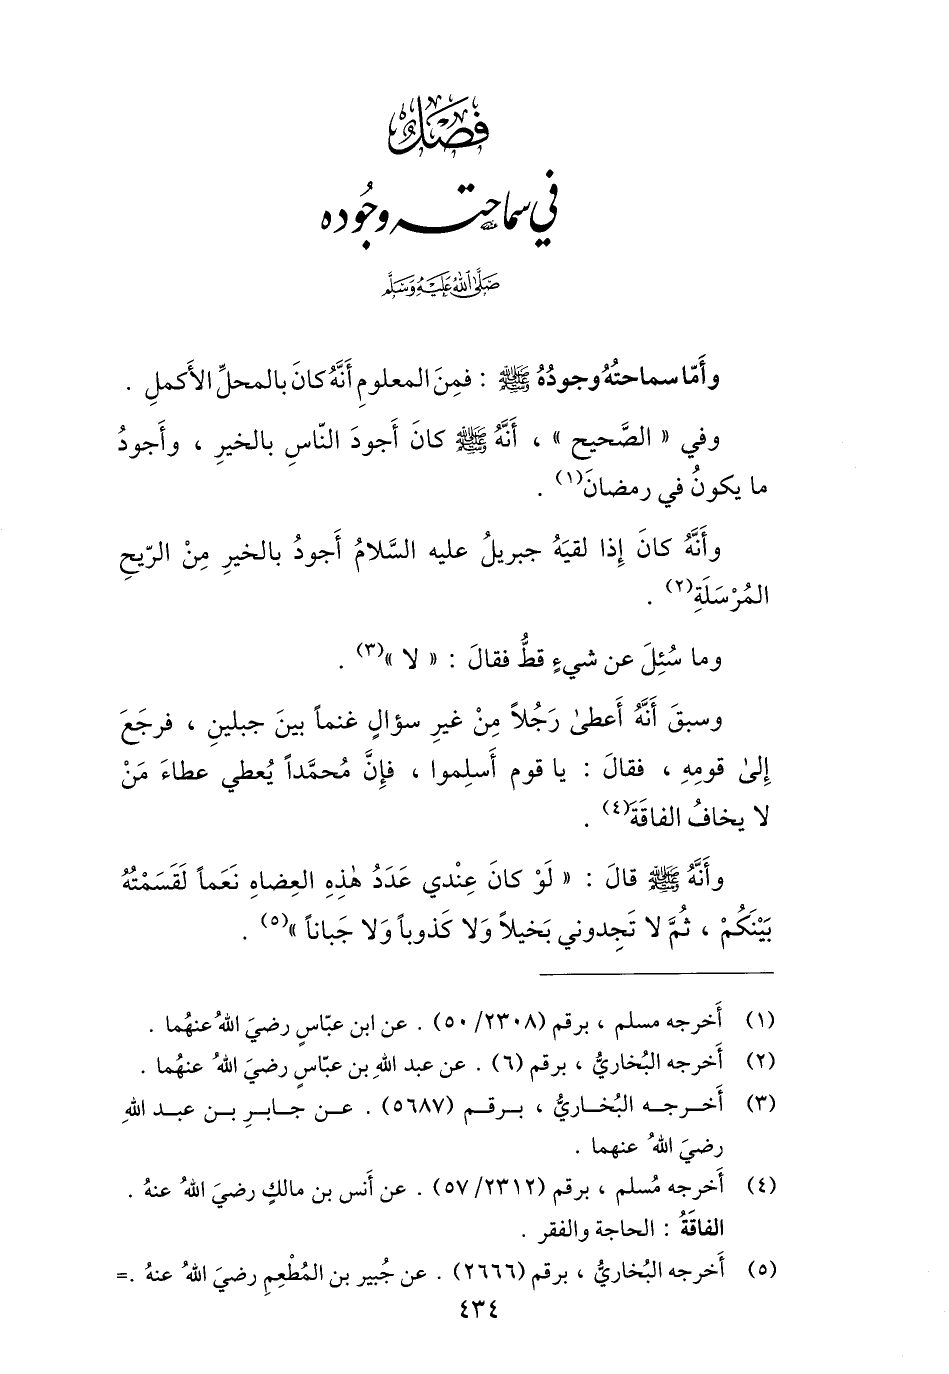 فَصْلٌ
في سماحته وجُوده
صَلَّى ٱللهُ عَلَيْهِ وَسَلَّم
وأَمّا سماحتُهُ وجودُهُ ﷺ : فمِنَ المعلومِ أَنَّهُ كانَ بالمحلِّ الأَكملِ .
وفي « الصَّحيح » ، أَنَّهُ ﷺ كانَ أَجودَ النّاسِ بالخيرِ ، وأَجودُ
ما يكونُ في رمضانَ(١) .
وأَنَّهُ كانَ إِذا لقيَهُ جبريلُ عليه السَّلامُ أَجودُ بالخيرِ مِنْ الرّيحِ
المُرْسَلَةِ(٢) .
وما سُئِلَ عن شيءٍ قطُّ فقالَ : « لا »(٣) .
وسبقَ أَنَّهُ أَعطىٰ رَجُلاً مِنْ غيرِ سؤالٍ غنماً بينَ جبلينِ ، فرجَعَ
إِلىٰ قومِهِ ، فقالَ : يا قوم أَسلِموا ، فإِنَّ مُحمَّداً يُعطي عطاءَ مَنْ
لا يخافُ الفاقَةَ(٤) .
وأَنَّهُ ﷺ قالَ : « لَوْ كانَ عِنْدي عَدَدُ هٰذِهِ العِضاهِ نَعَماً لَقَسَمْتُهُ
بَيْنَكُمْ ، ثُمَّ لا تَجِدوني بَخيلاً وَلا كَذوباً وَلا جَباناً »(٥) .
(١) أَخرجه مسلم ، برقم (٢٣٠٨/ ٥٠) . عن ابن عبّاسٍ رضيَ اللهُ عنهُما .
(٢) أَخرجه البُخاريُّ ، برقم (٦) . عن عبد اللهِ بن عبّاسٍ رضيَ اللهُ عنهُما .
(٣) أَخرجه البُخاريُّ ، برقم (٥٦٨٧) . عن جابرِ بن عبد اللهِ
رضيَ اللهُ عنهما .
(٤) أَخرجه مُسلم ، برقم (٢٣١٢/ ٥٧) . عن أَنس بن مالكٍ رضيَ اللهُ عنهُ .
الفاقَةُ : الحاجة والفقر .
(٥) أَخرجه البُخاريُّ ، برقم (٢٦٦٦) . عن جُبير بن المُطْعِمِ رضيَ اللهُ عنهُ .=
٤٣٤